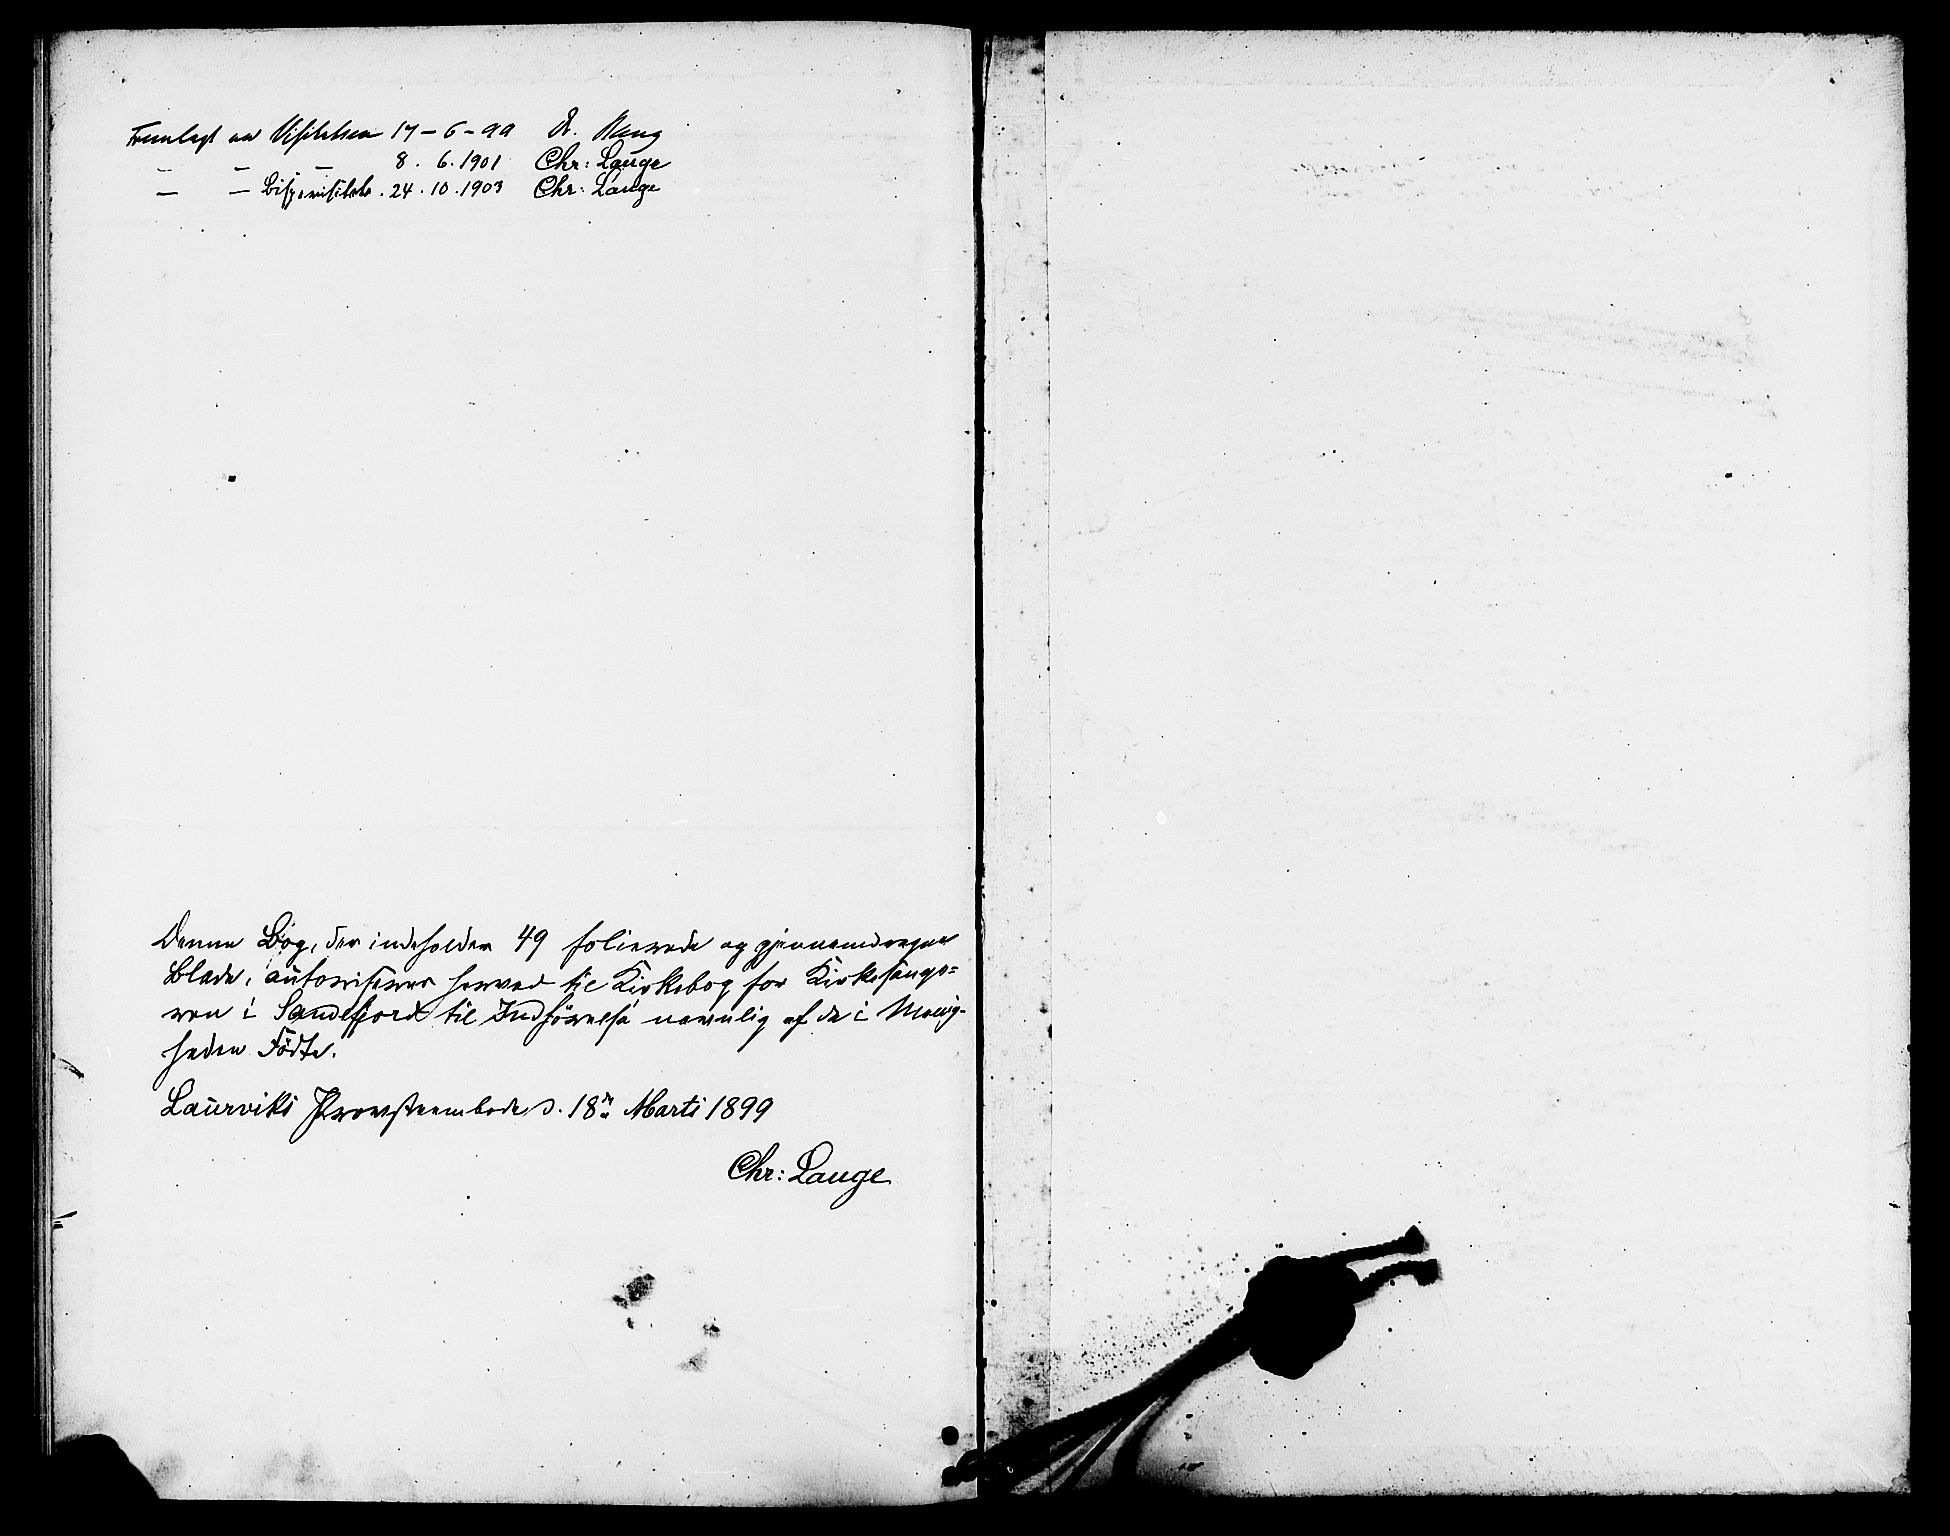 Fremlagt ved Visitatsen 17 – 6 – 99
– – – 8 . 6 . 1901 Chr: Lange
– – Bispevisitats . 24 . 10 . 1903 Chr: Lange
Denne Bog, der indeholder 49 folierede og gjennemdragne
Blade, autoriseres herved til Kirkebog for Kirkesange-
ren i Sandefjord til Indförelse navnlig af de i Menig-
heden Födte.
Laurviks Provsteembede d. 18de Marts 1899
Chr: Lange